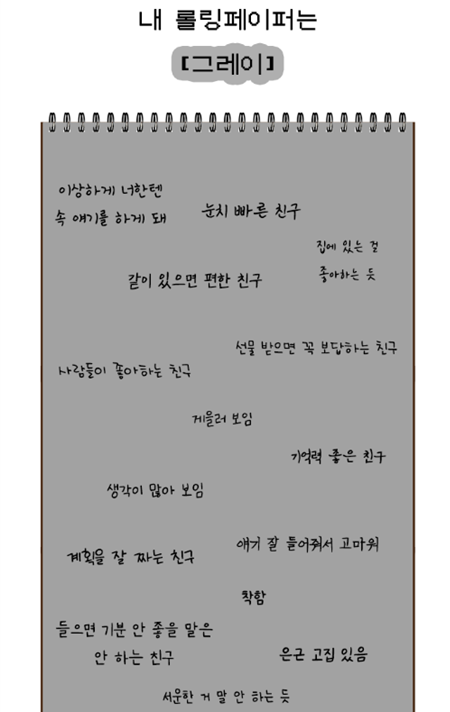 내 롤링페이퍼는
[그레이]
이상하게 너한텐
속 얘기를 하게 돼
눈치 빠른 친구
집에 있는 걸
좋아하는 듯
같이 있으면 편한 친구
선물 받으면 꼭 보답하는 친구
사람들이 좋아하는 친구
게을러 보임
기억력 좋은 친구
생각이 많아 보임
얘기 잘 들어줘서 고마워
계획을 잘 짜는 친구
착함
들으면 기분 안 좋을 말은
안 하는 친구
은근 고집 있음
서운한 거 말 안 하는 듯